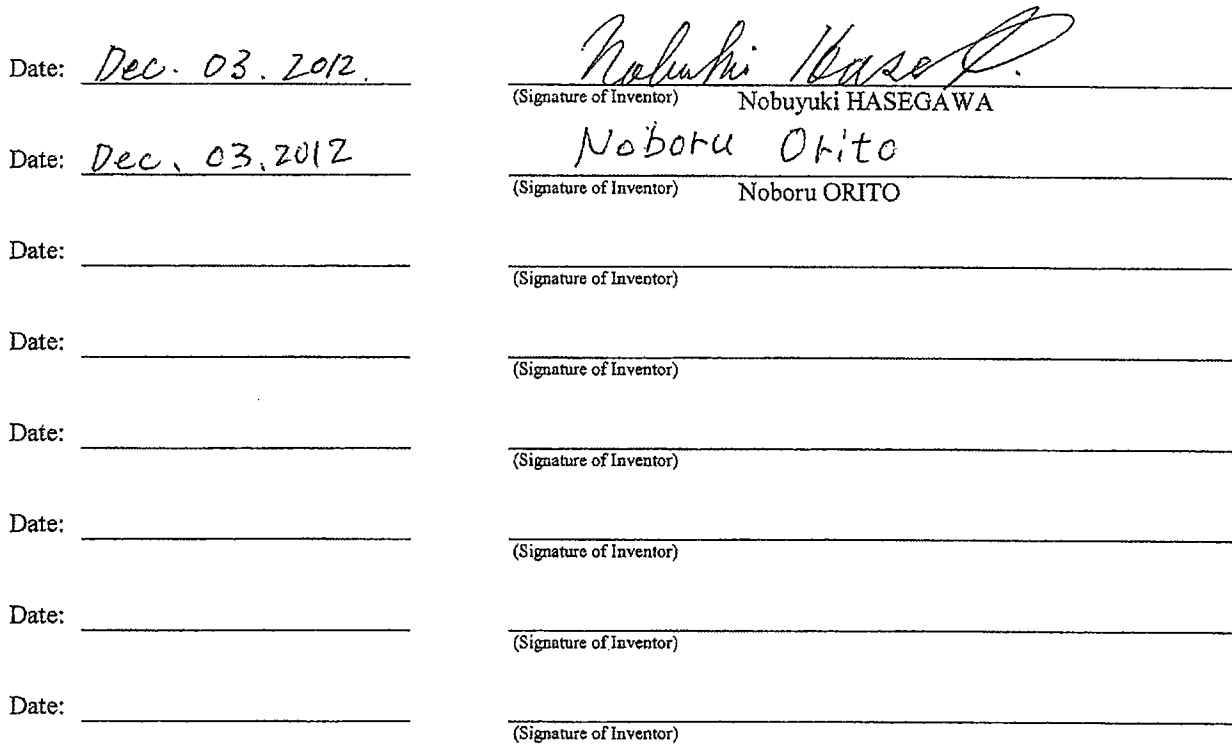 Date: Dec. 03. 2012.
(Signature of Inventor) Nobuyuki HASEGAWA
Date: Dec. 03. 2012 Noboru Orito
(Signature of Inventor) Noboru ORITO
Date:
(Signature of Inventor)
Date:
(Signature of Inventor)
Date:
(Signature of Inventor)
Date:
(Signature of Inventor)
Date:
(Signature of Inventor)
Date:
(Signature of Inventor)